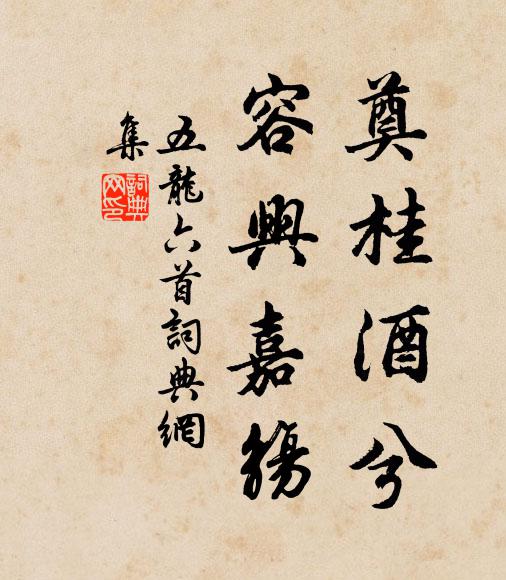 奠桂酒兮
容與嘉觴
五龍六首詞典網
集
詞典
网印